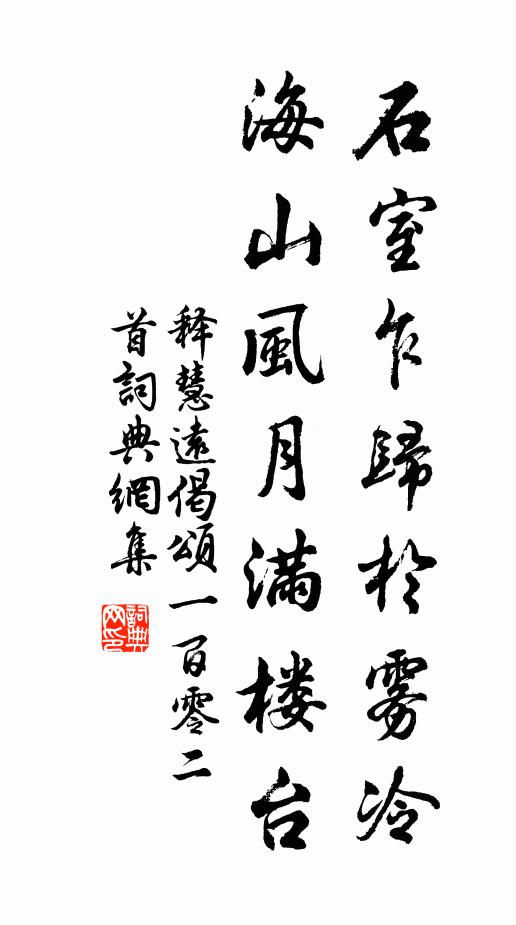 石室乍歸松雾冷
海山風月满楼台
释慧遠偈頌一百零二
首詞典網集
詞典
网印